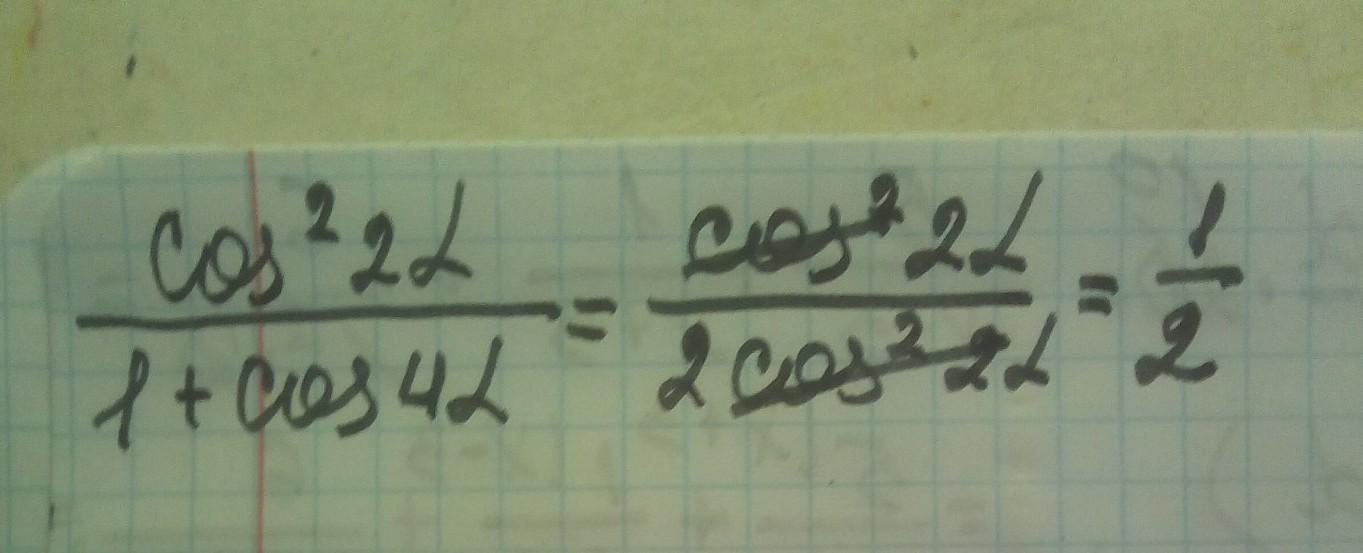 cos² 2α / 1 + cos 4α = cos² 2α / 2 cos² 2α = 1 / 2